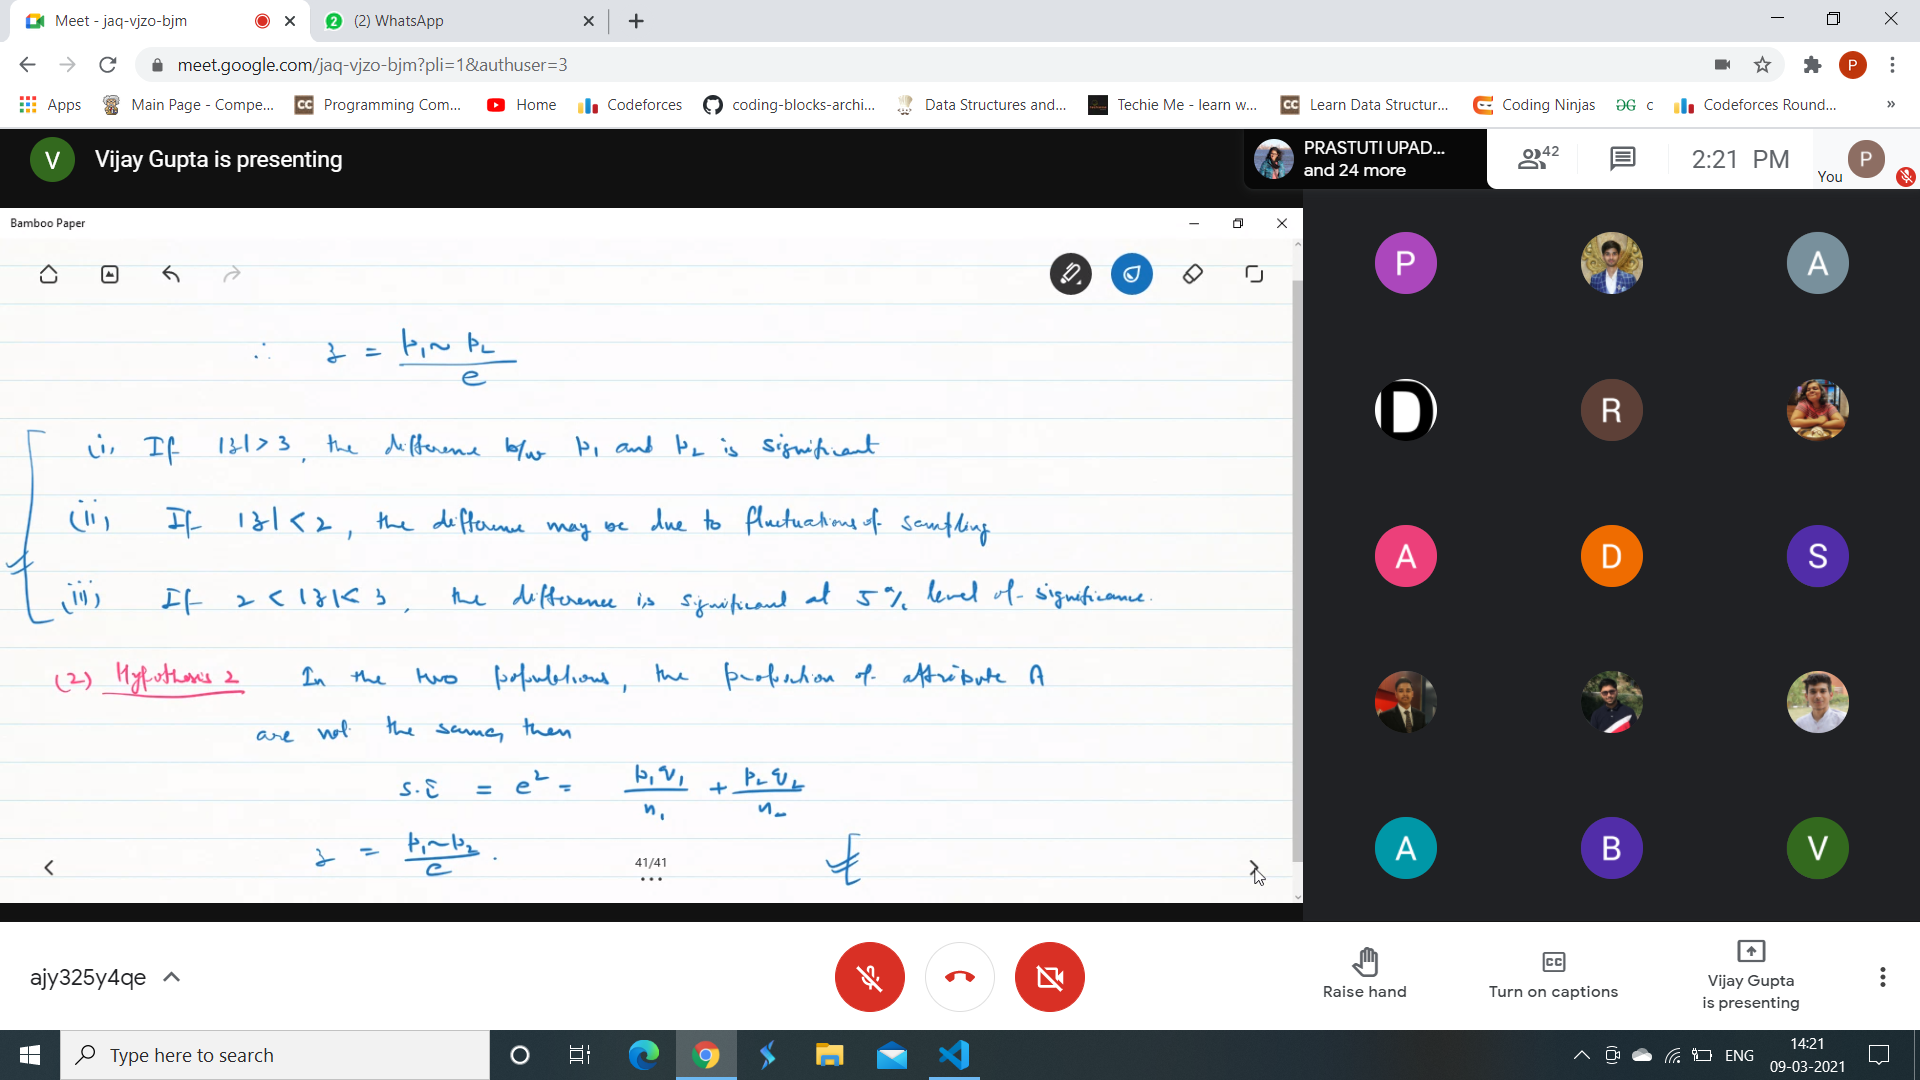 Meet - jaq-vjzo-bjm
2 (2) WhatsApp
meet.google.com/jaq-vjzo-bjm?pli=1&authuser=3
P
Apps Main Page - Compe... CC Programming Com... Home Codeforces coding-blocks-archi... Data Structures and... Techie Me - learn w... CC Learn Data Structur... Coding Ninjas c Codeforces Round... »
V Vijay Gupta is presenting
PRASTUTI UPAD...
and 24 more
42
2:21 PM
You P
Bamboo Paper
∴ z = p₁ ~ p₂ / e
(i) If |z| > 3, the difference b/w p₁ and p₂ is significant
(ii) If |z| < 2, the difference may be due to fluctuations of sampling
(iii) If 2 < |z| < 3, the difference is significant at 5% level of significance.
(2) Hypothesis 2 In the two populations, the proportion of attribute A
are not the same, then
S.E = e² = p₁q₁/n₁ + p₂q₂/n₂
z = p₁~p₂ / e .
41/41
P A
D R
A D S
A B V
ajy325y4qe
Raise hand
Turn on captions
Vijay Gupta
is presenting
Type here to search
ENG
14:21
09-03-2021